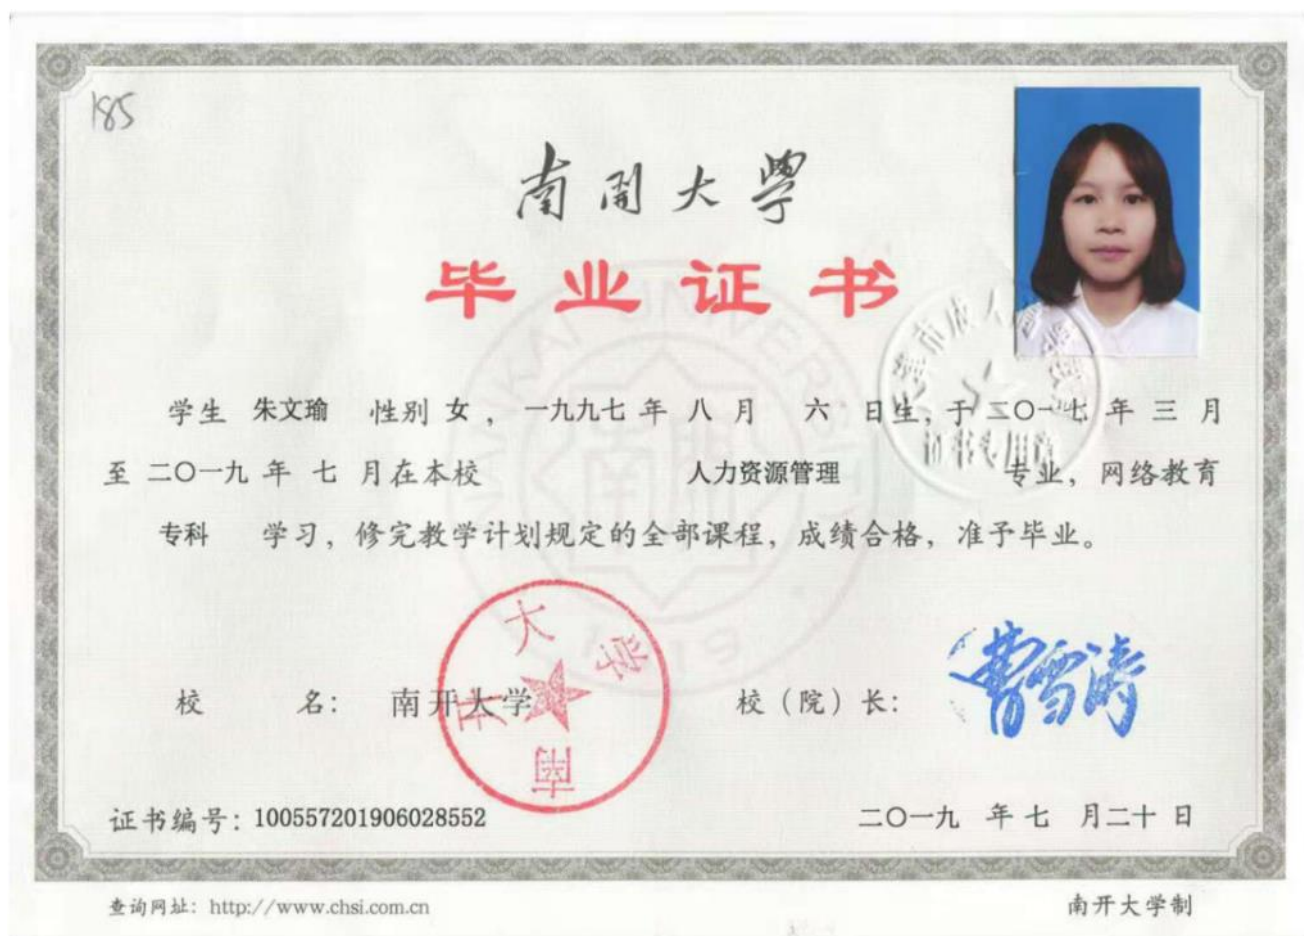 185
南開大學
毕业证书
学生 朱文瑜 性别 女，一九九七 年 八 月 六 日生，于 二〇一七 年 三 月
至 二〇一九 年 七 月在本校 人力资源管理 专业，网络教育
专科 学习，修完教学计划规定的全部课程，成绩合格，准予毕业。
校 名：南开大学 校（院）长：曹雪涛
南开大学
证书编号：100557201906028552 二〇一九 年 七 月二十 日
查询网址：http://www.chsi.com.cn 南开大学制
NANKAI UNIVERSITY
南開
1919
证书专用章